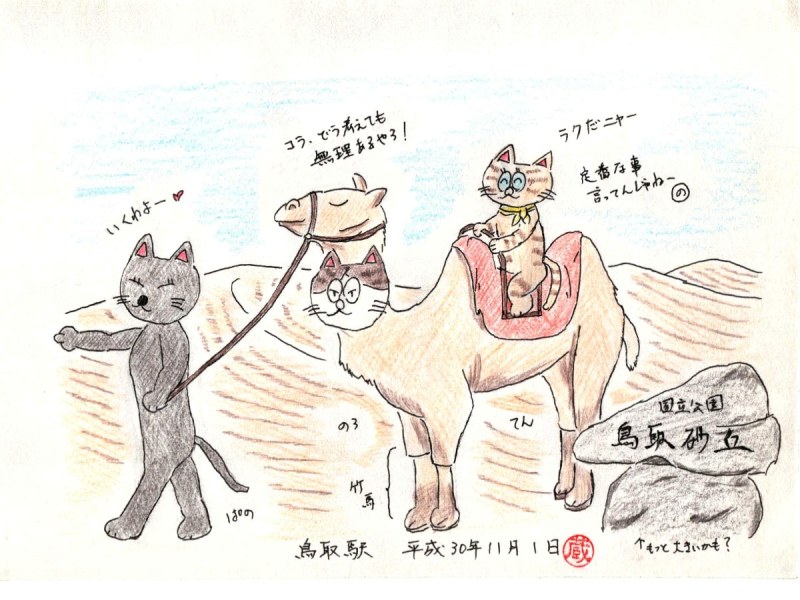 コラ、どう考えても
無理あるやろ!
ラクだニャー
定番な事
言ってんじゃねー
の
いくわよー
国立公園
鳥取砂丘
のろ
てん
竹馬
ぱの
鳥取駅 平成30年11月1日
蔵
↑もっと大きいかも?